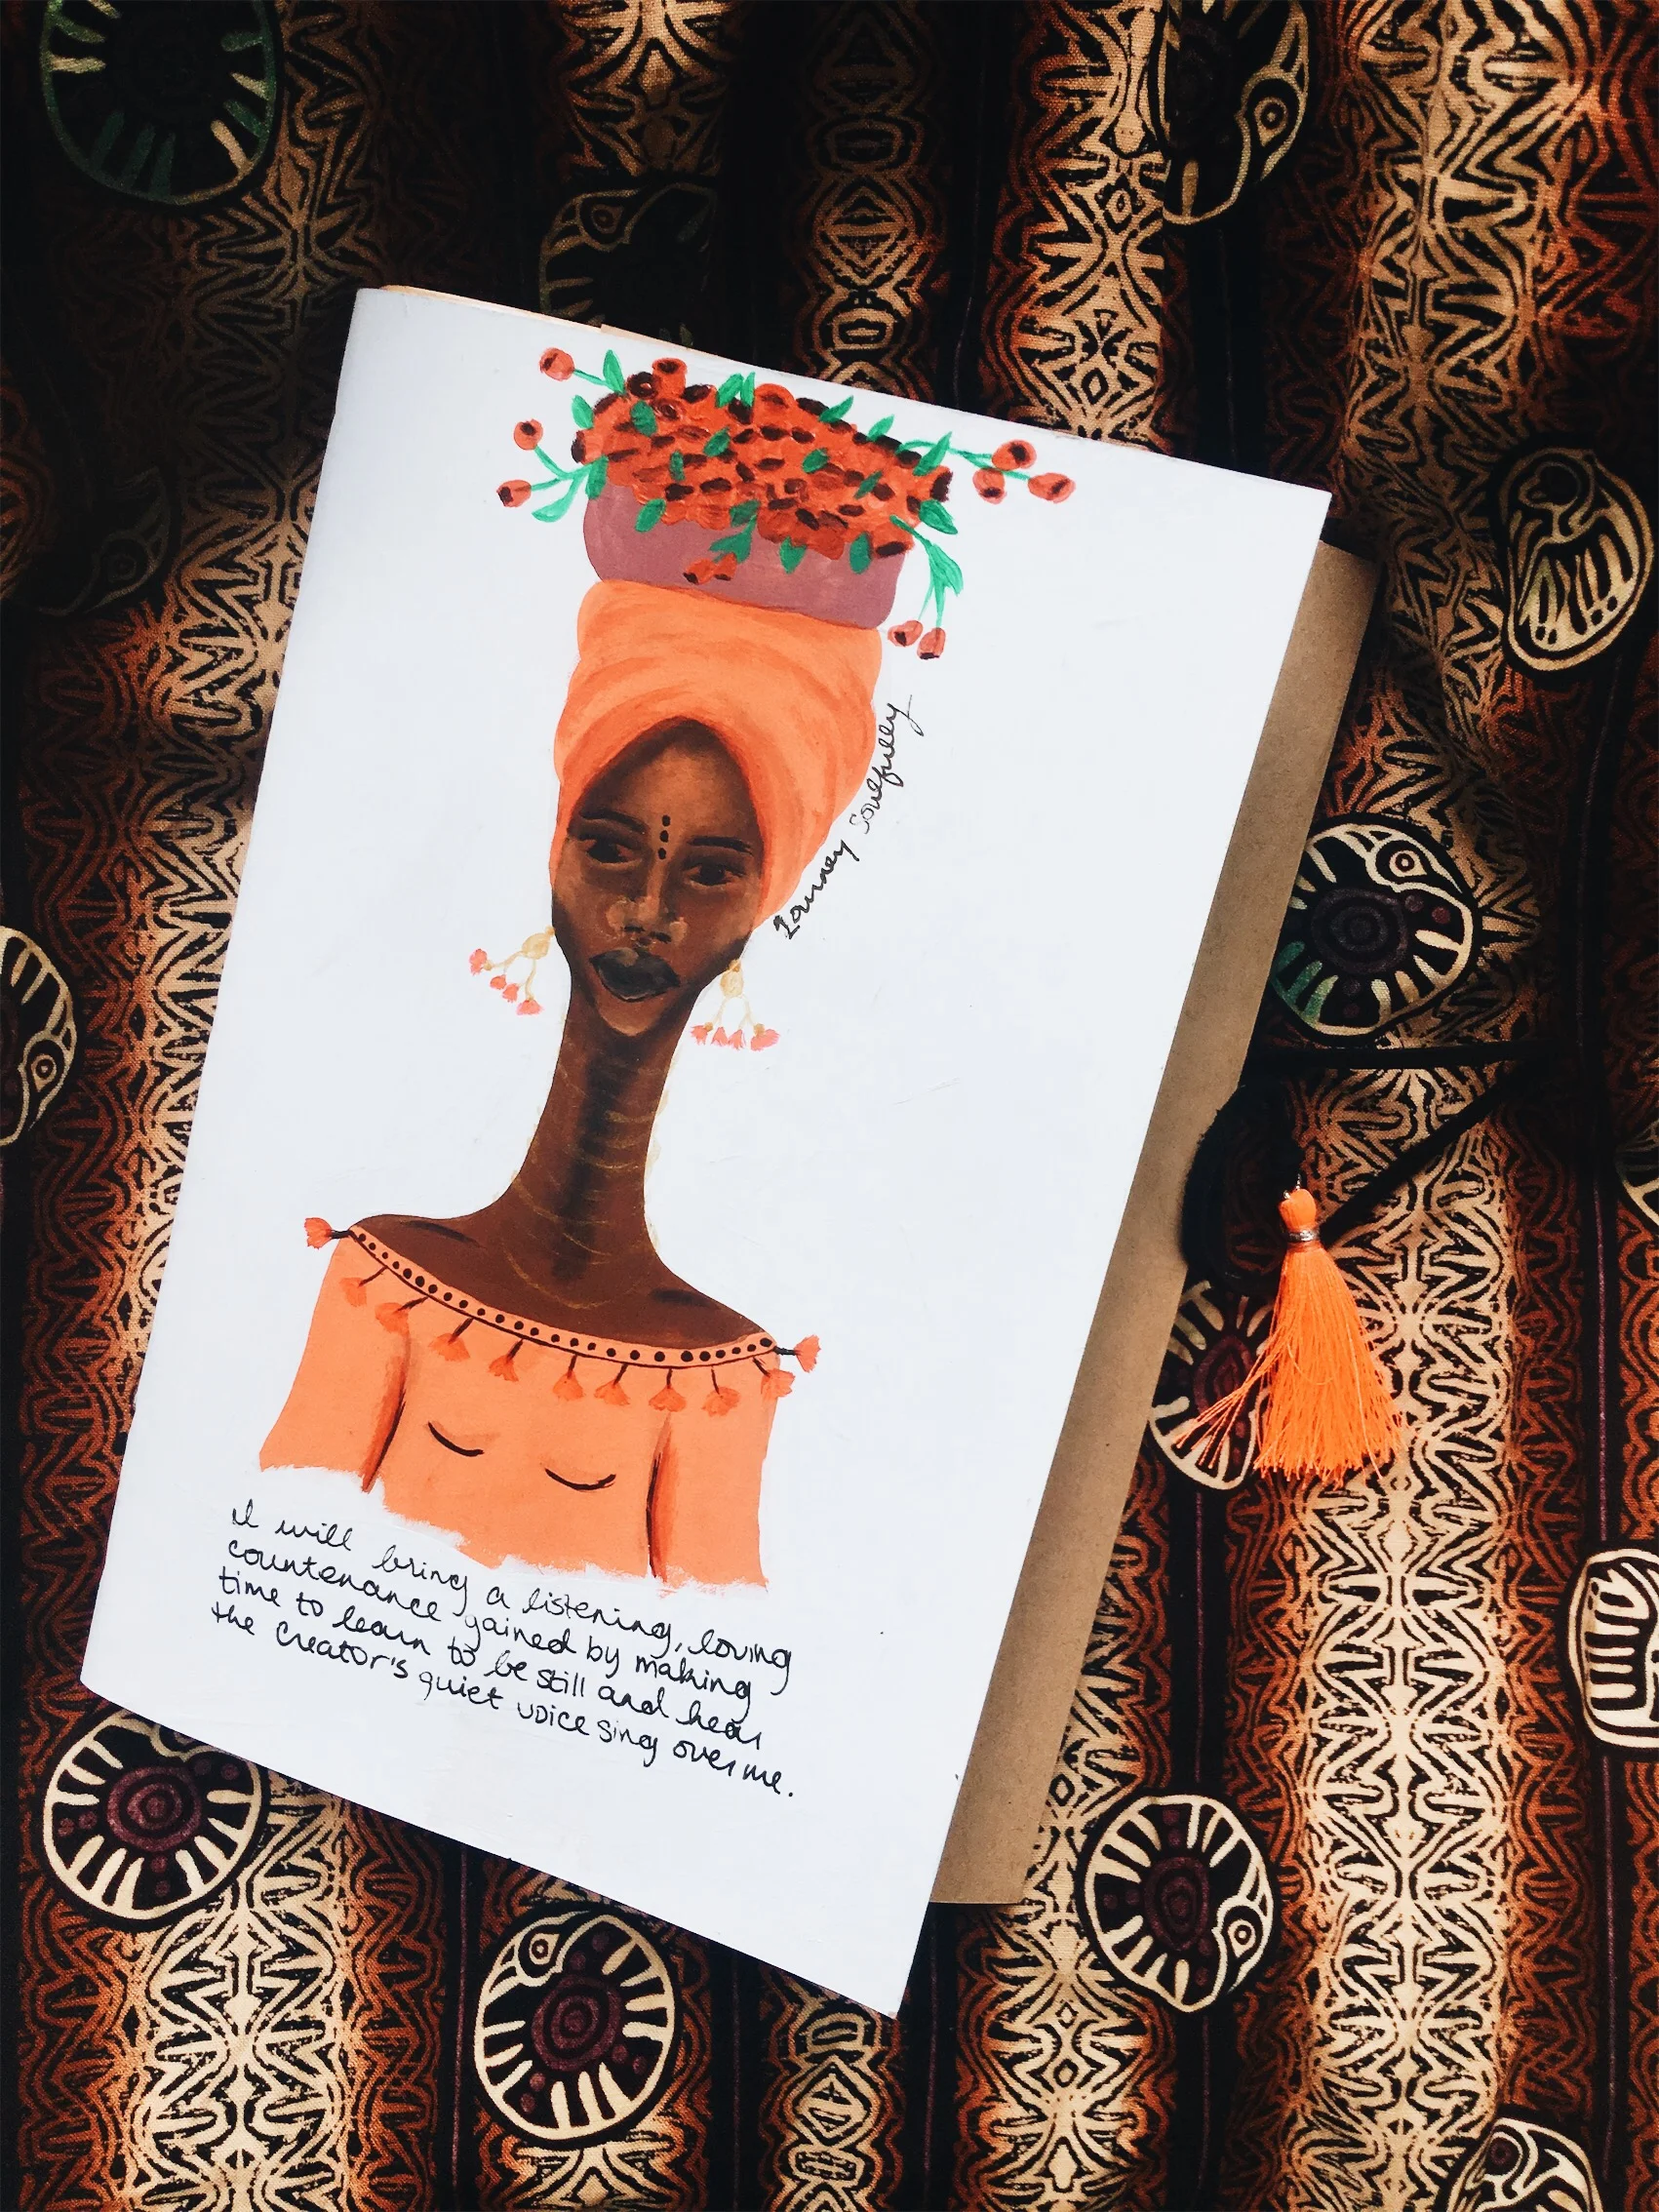 Journey Soulfully
I will bring a listening, loving
countenance gained by making
time to learn to be still and hear
the Creator's quiet voice sing over me.